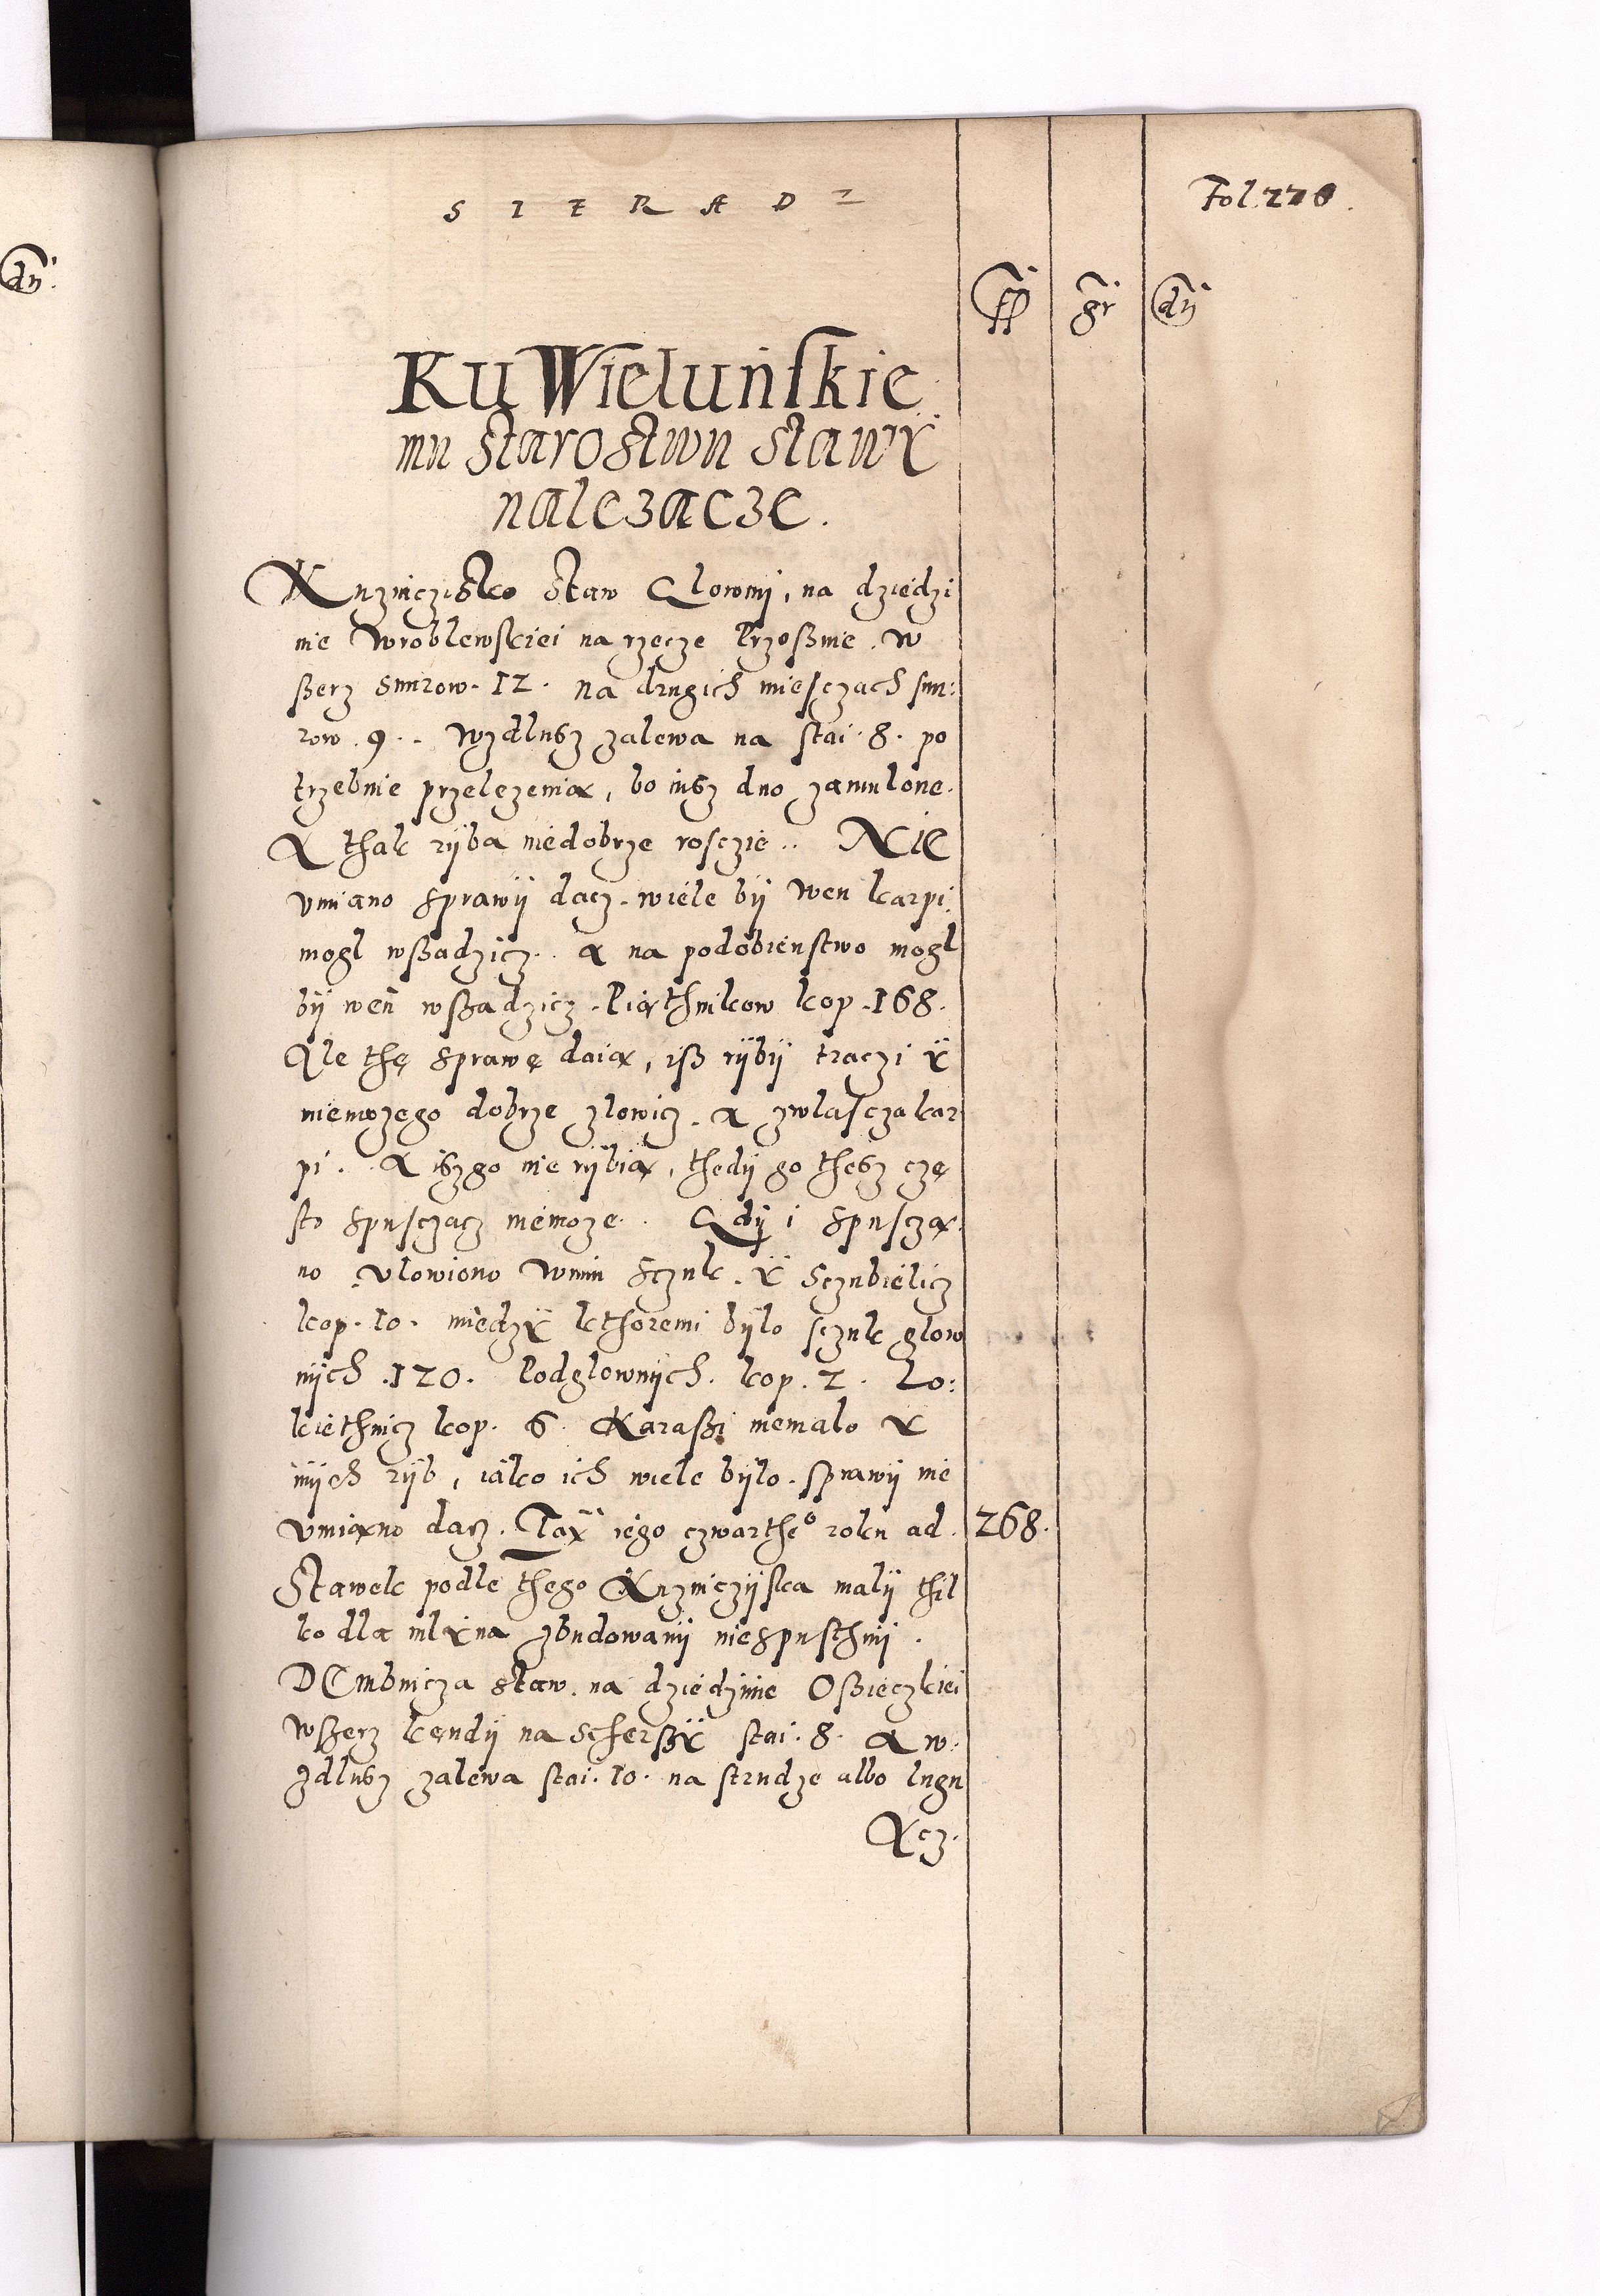 SIERADZ
Fol. 220.
dń.
fl gr dń
Ku Wieluńskie
mu starostwu stawÿ
należacze.
Kuzniczisko staw Glowni, na dziedzi
nie Wroblewskiei na rzecze Przoßnie. w
ßerz snurow. 12. Na drugich miesczach snu:
row. 9.. Wzdlusz zalewa na stai. 8. po
trzebuie przelezenia, bo iusz dno zamulone.
A thak rÿba niedobrze rosczie.. Nie
umiano sprawÿ dacz. wiele bÿ wen karpi
mogl wßadzicz.. a na podobienstwo mogl
bÿ weń wßadzicz. Piąthnikow kop. 168.
Ale thę sprawę daią, iß rÿbÿ traczi ÿ
niemozego dobrze zlowicz. a zwlascza kar
pi.. A iszgo nie rÿbią, thedÿ go thesz czę
sto spusczacz niemoze.. Gdÿ i spuscza
no, ulowiono wnim sczuk. ÿ Sczubielicz
kop. 10. miedzÿ kthoremi bÿlo sczuk glow
nÿch. 120. Podglownÿch. kop. 2. Lo:
kiethnicz kop. 6. Karaßi niemalo ÿ
inÿch rÿb, iako ich wiele bÿlo. sprawÿ nie
umiano dacz. Tax iego czwartheo roku ad. 268.
Stawek podle thego Kuzniczÿska malÿ thil
ko dla mlÿna zbudowanÿ niespusthnÿ.
DEmbnicza staw. na dziedzinie Oßieczkiei
wßerz kędÿ na scherßÿ stai. 8. a w:
zdlusz zalewa stai. 10. na strudze albo lugu
Acz.